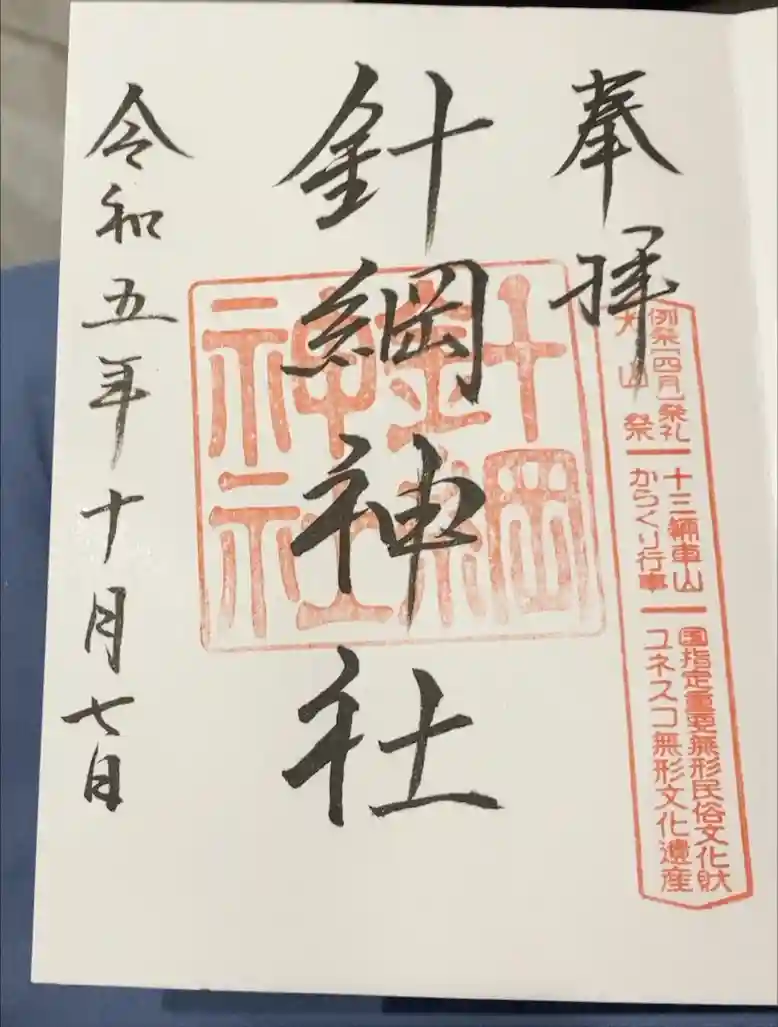 奉拝
例祭(四月)祭礼
犬山祭
十三輛車山
からくり行事
国指定重要無形民俗文化財
ユネスコ無形文化遺産
針綱神社
針綱神社
令和五年十月七日